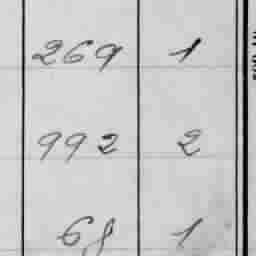 269 1
992 2
68 1